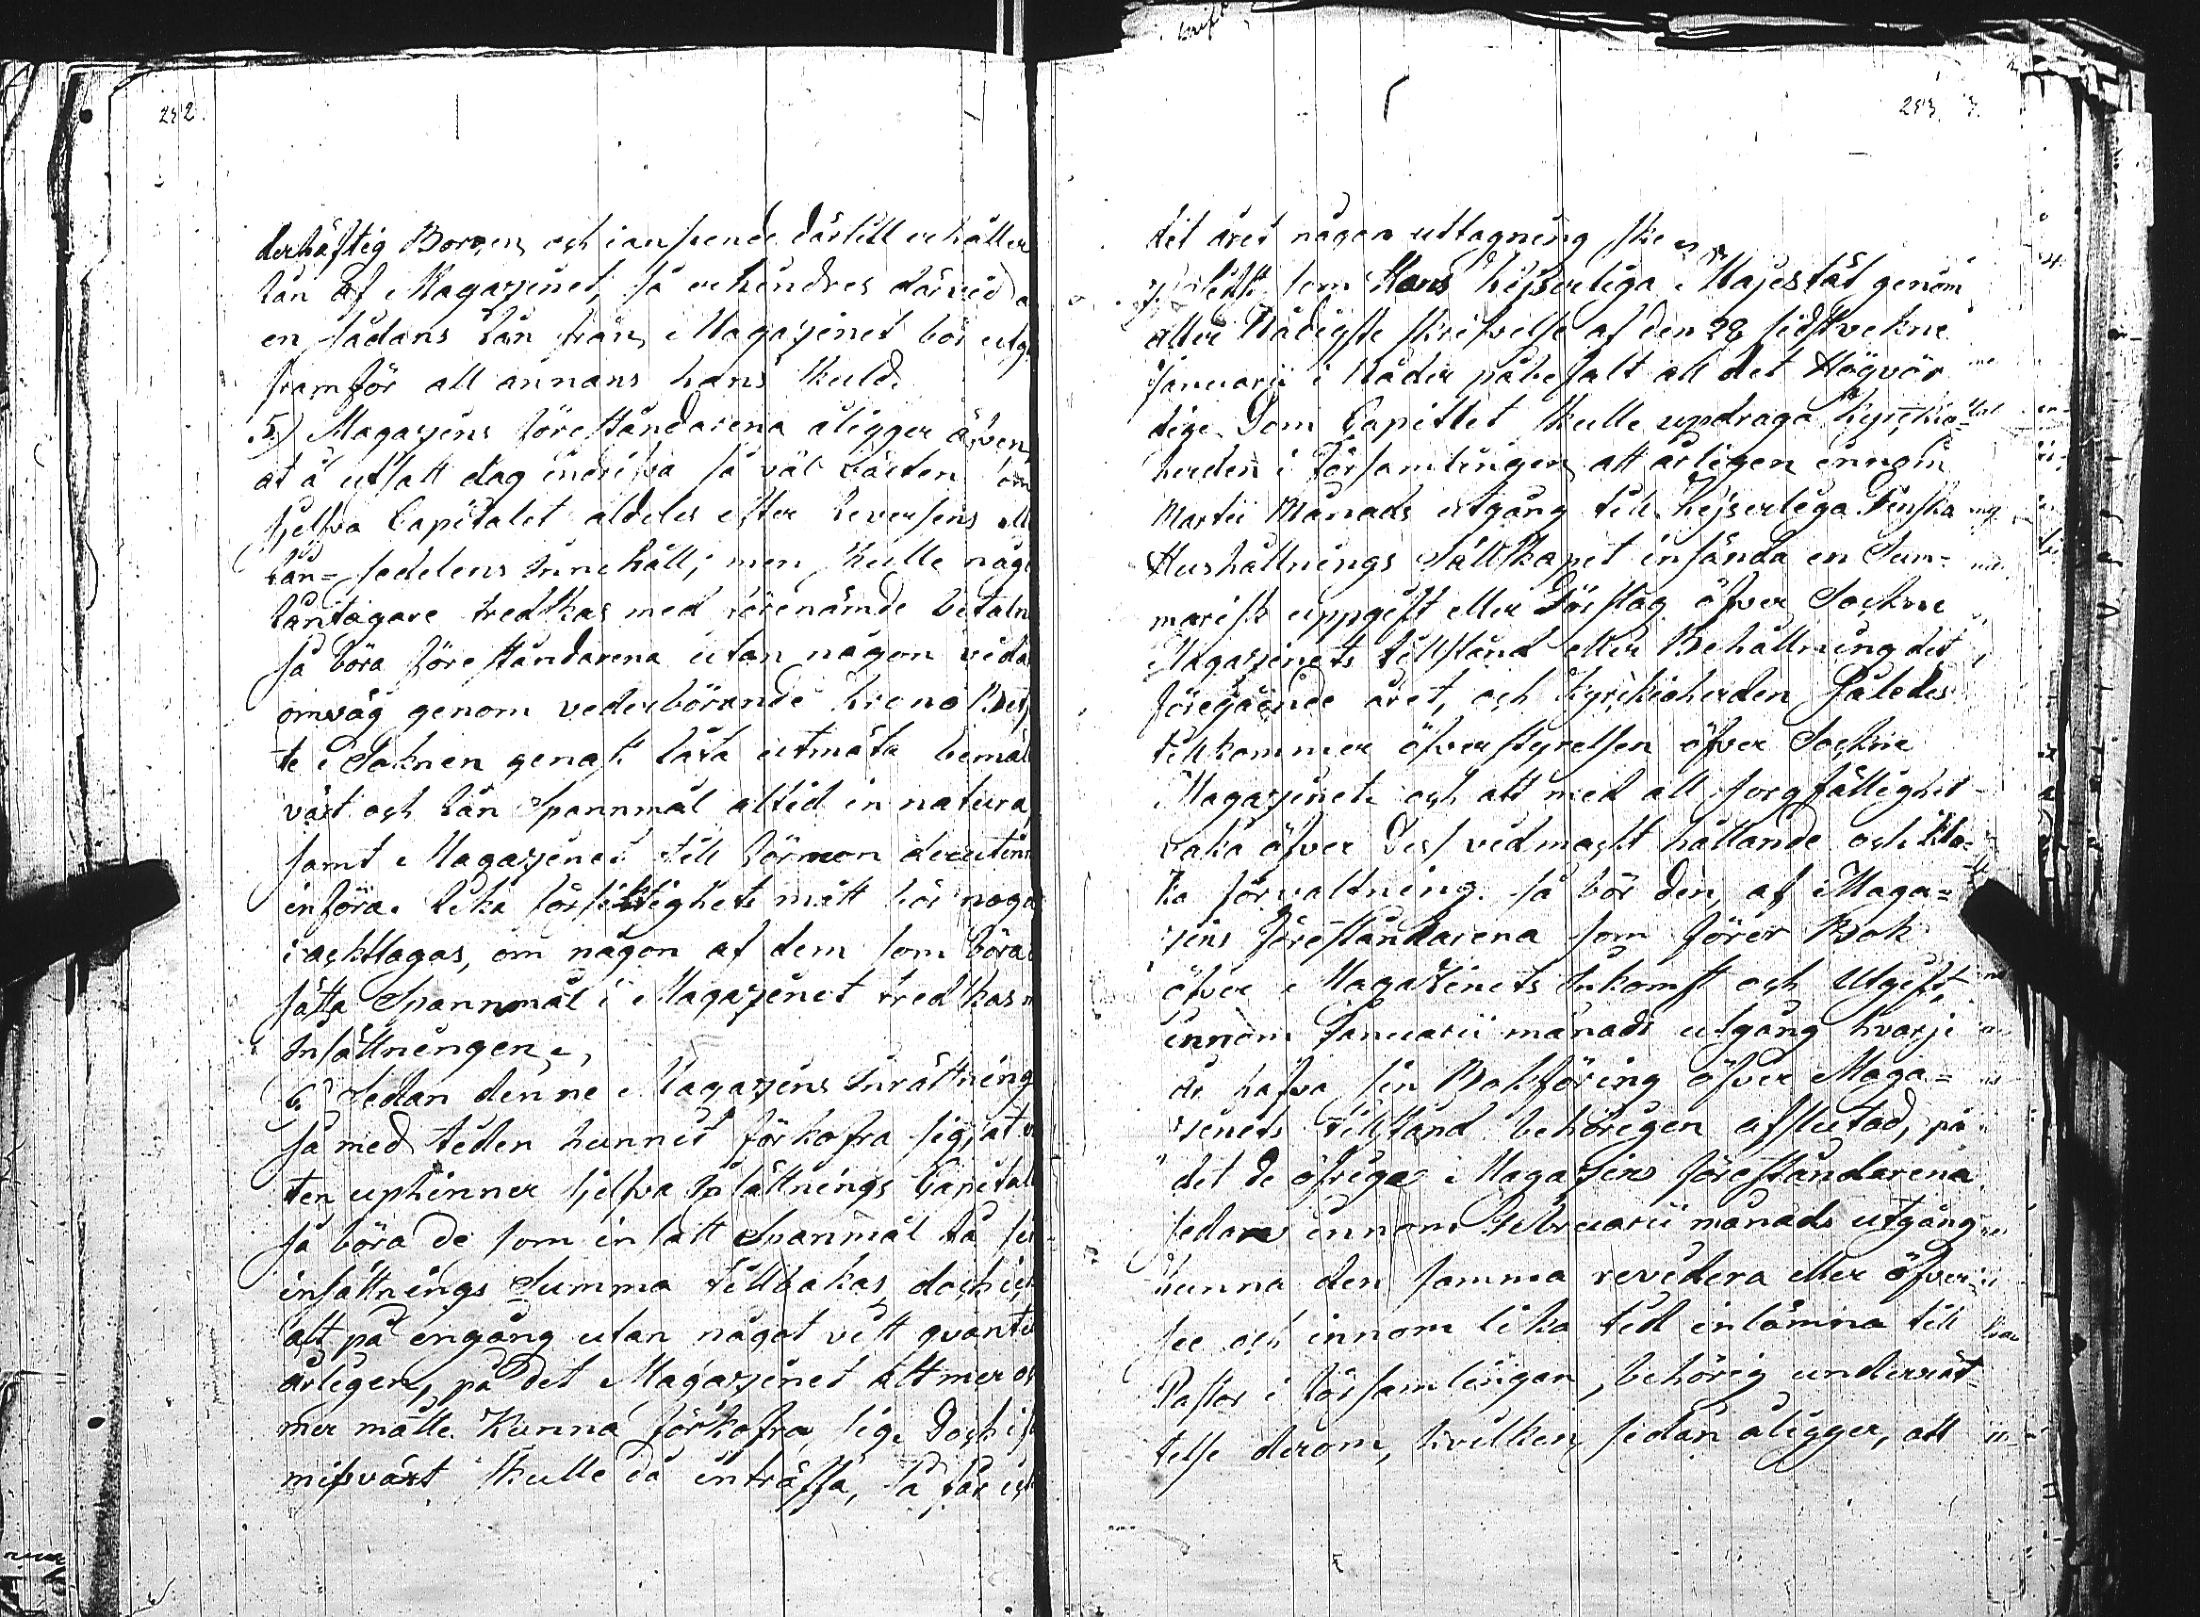 252.
derhäftig Borgen och i anseende därtill erhåller
lån af Magazinet, så erhindres därvid a
en sådans lån från Magazinet bör utg
framför all annans hans skuld.
5) Magazins Föreståndarena åligger äfven,
at å utsatt dag indrifva så väl Räntan som
sjelfva Capitalet aldeles efter Reversens ell
Lån-sedelens innehåll; men skulle någ
Låntagare tredskas med förenämde betaln
så böra Föreståndarena utan någon vida
omväg genom vederbörande Krono Betj
te i Soknen genast låta utmäta bemäl
växt och lån Spannmål altid in natura,
samt Magazinet till förmon
införa. Lika försiktighets mått bör noga
i acht tagas, om någon af dem som böra
sätta Spannmål i Magazinet tredskas m
Insättningen.
6. Sedan denne Magazins Inrättning
så med tiden hunnit förkofra sig, at
ten uphinner sjelfva Insättnings Capital
så böra de som insatt Spanmål få sin
insättnings Summa tillbakas, doch ick
alt på engång utan något vist quantu
årligen, på det Magazinet alt mer oc
mer måtte kunna förkofra sig. Doch if
missväxt skulle då inträffa, så får ick
253.
det året någon uttagning ske
7. som Hans Kejserliga Majestät genom
aller Nådigste skrifvelse af den 28 sidstvekne
Januarii i Nåder påbefalt att det Högvör
dige Dom Capitlet skulle updraga Kyrkio-
herden i Församlingen, att årligen innom
Martii Månads utgång till Kejserliga Finska
Hushållnings Sällskapet insända en Sum-
marisk uppgift eller Förslag öfver Sockne
Magazinets tillstånd eller Behållning det
föregående året, och Kyrkioherden således
tillkommer öfverstyrelsen öfver Sockne
Magazinet och att med all sorgfällighet
vaka öfver Dess vidmacht hållande och
ka förvaltning. så bör den, af Maga-
zins Föreståndarena som förer Bok
öfver Magazinets Inkomst och Utgift,
innom Januarii månads utgång hvarje
år hafva sin Bokföring öfver Maga-
zinets tillstånd behörigen afslutad, på
det de öfriga Magazins Föreståndarena
sedan innom Februarii månads utgång
kunna den samma revidera eller öfver
see och innom lika tid inlämna till
Pastor i Församlingen, behörig underrät-
telse derom, hvilken sedan åligger, att